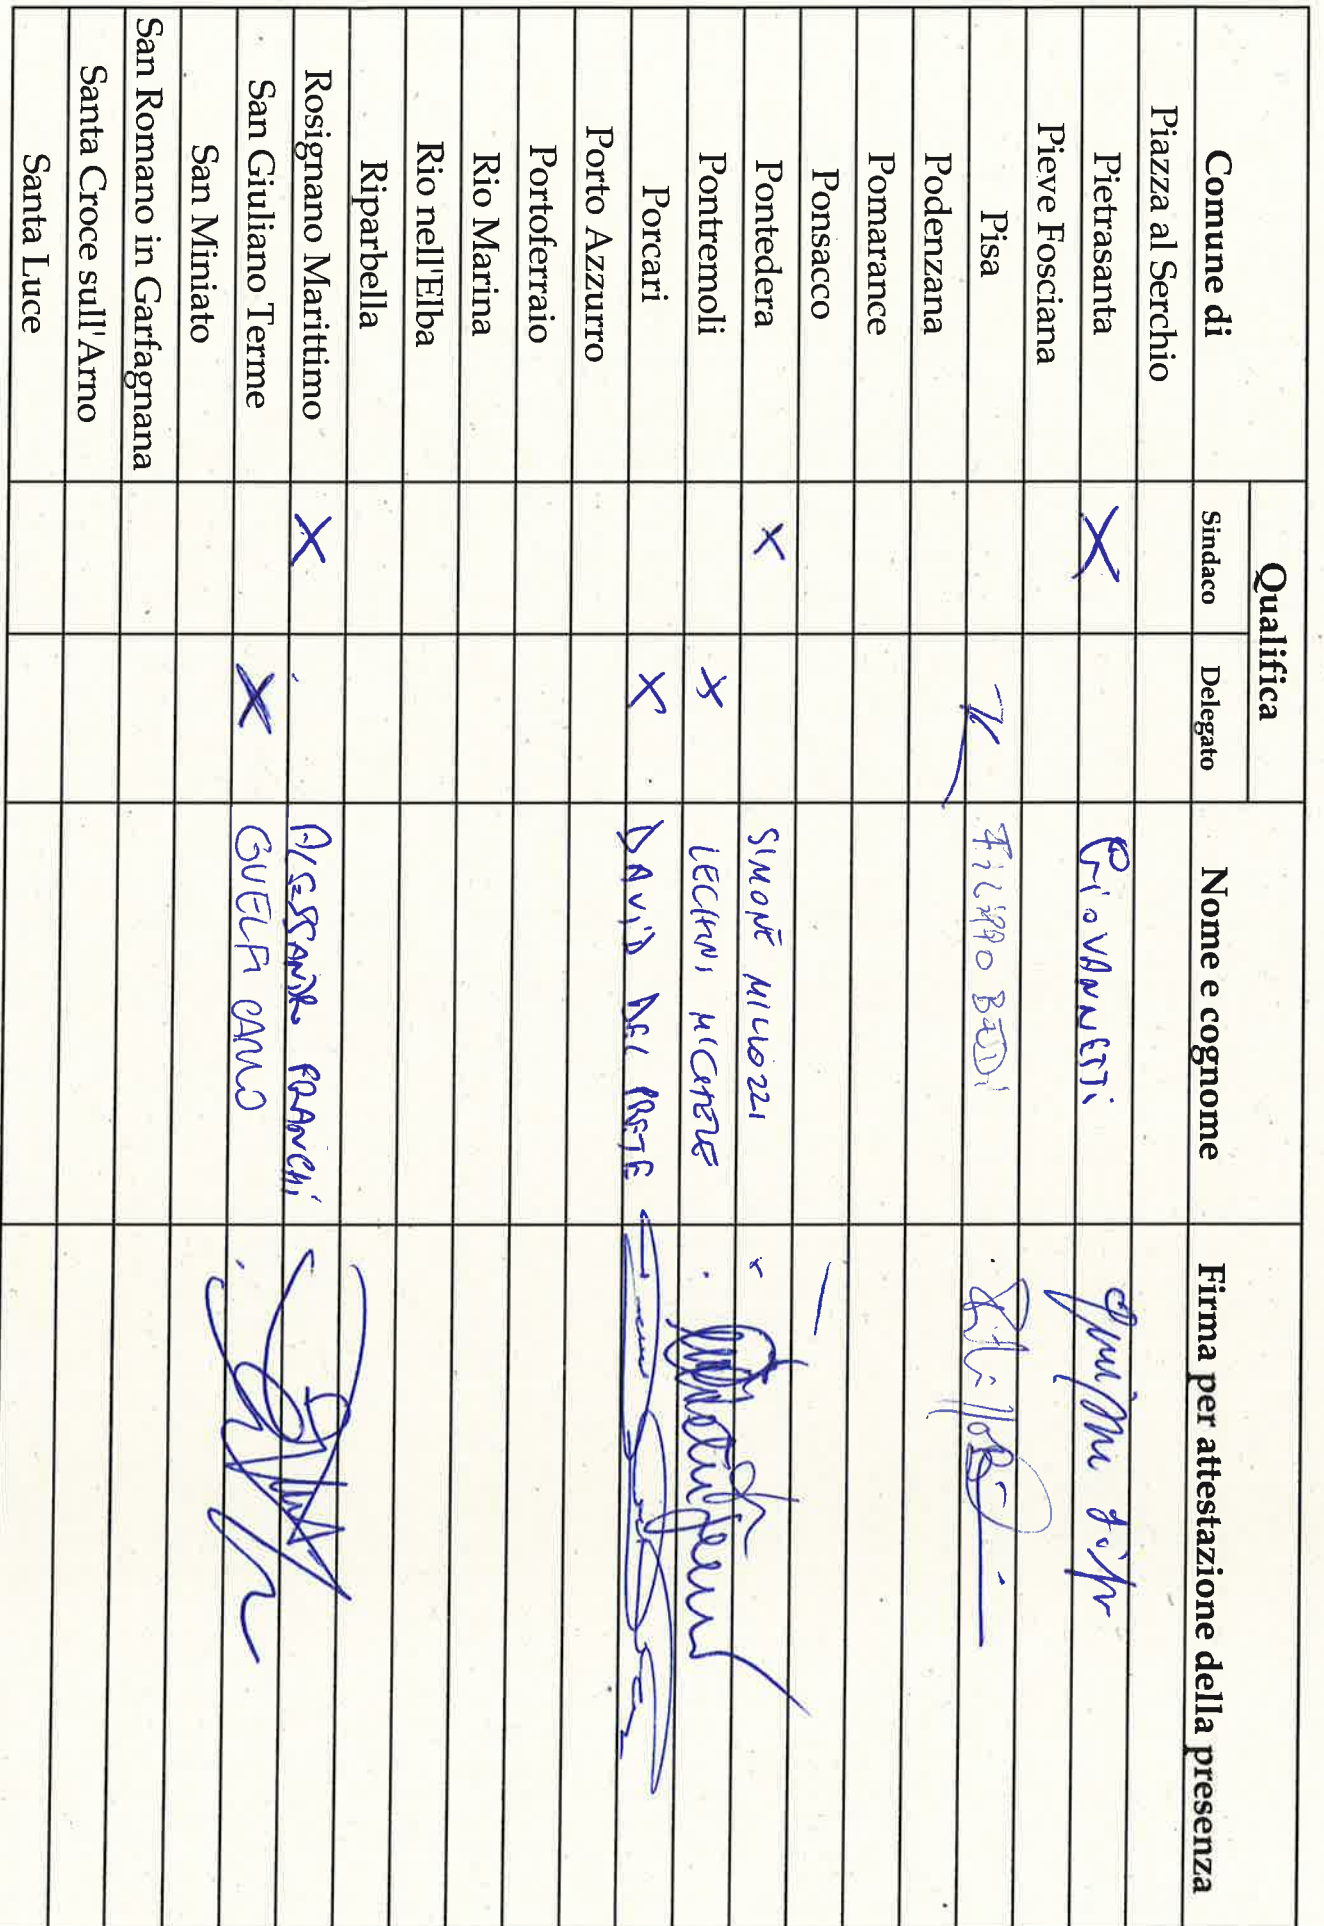 Comune di Qualifica Nome e cognome Firma per attestazione della presenza
Sindaco Delegato
Piazza al Serchio
Pietrasanta X GiOVANNETTi
Pieve Fosciana
Pisa FiLiPPO BEDDi
Podenzana
Pomarance
Ponsacco
Pontedera X SIMONE MILLOZZI
Pontremoli X LECCHINI MICHELE
Porcari X DAViD DEL PRETE
Porto Azzurro
Portoferraio
Rio Marina
Rio nell'Elba
Riparbella
Rosignano Marittimo X ALESSANDRO FRANCHi
San Giuliano Terme X GUELFI CARLO
San Miniato
San Romano in Garfagnana
Santa Croce sull'Arno
Santa Luce